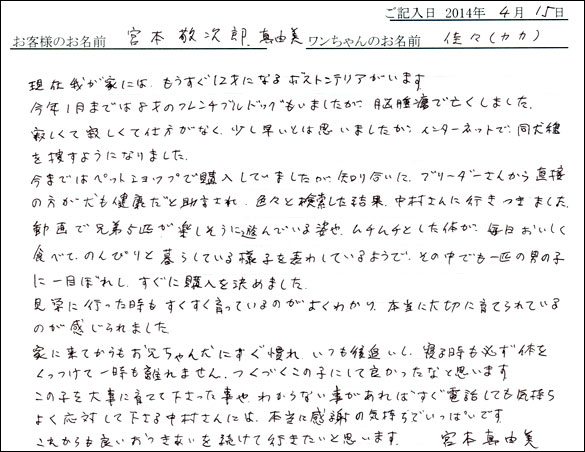 ご記入日 2014年 4月 15日
お客様のお名前 宮本 敬次郎、真由美 ワンちゃんのお名前 佳々(カカ)
現在我が家には、もうすぐ12才になるボストンテリアがいます
今年1月までは8才のフレンチブルドッグもいましたが、脳腫瘍で亡くしました。
寂しくて寂しくて仕方がなく、少し早いとは思いましたが、インターネットで、同犬種
を捜すようになりました。
今まではペットショップで購入していましたが、知り合いに、ブリーダーさんから直接
の方が犬も健康だと助言され、色々と検索した結果、中村さんに行きつきました。
動画で兄弟5匹が楽しそうに遊んでいる姿や、ムチムチとした体が、毎日おいしく
食べて、のんびりと暮らしている様子を表わしているようで、その中でも一匹の男の子
に一目ぼれし、すぐに購入を決めました。
見学に行った時もすくすく育っているのがよくわかり、本当に大切に育てられている
のが感じられました
家に来てからもお兄ちゃん犬にすぐ慣れ、いつも後追いし、寝る時も必ず体を
くっつけて一時も離れません、つくづくこの子にして良かったなと思います
この子を大事に育てて下さった事や、わからない事があればすぐ電話しても気持ち
よく応対して下さる中村さんには、本当に感謝の気持ちでいっぱいです。
これからも良いおつきあいを続けて行きたいと思います。 宮本真由美